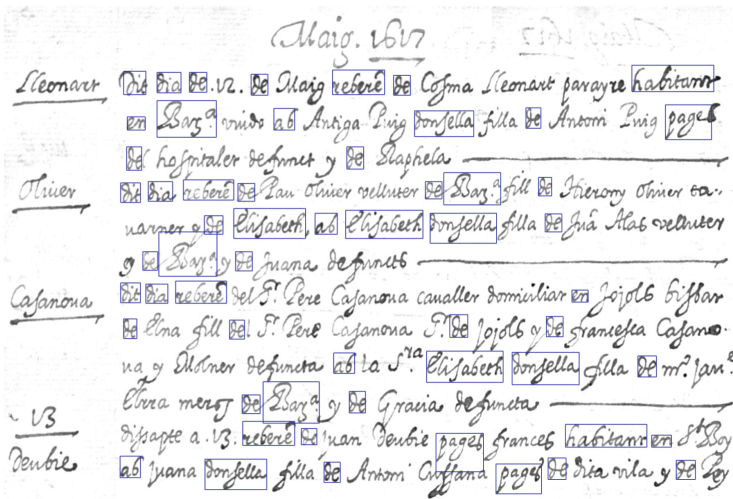 Maig. 1617
Lleonart
Dit dia de .12. de Maig reberé de Cosma Lleonart parayre habitant
en Barᵃ viudo ab Antiga Puig donsella filla de Antoni Puig pages
del hospitalet defunct y de Raphela
Oliver
dit dia reberé de Pau Oliver velluter de Barᵃ fill de Hierony Oliver ta-
varner y de Elisabeth, ab Elisabeth donsella filla de Juā Alas velluter
y de Barᵃ y de Juana defuncts
Casanova
dit dia reberé del Sʳ. Pere Casanova cavaller domiciliat en Jojols bisbat
de Elna fill del Sʳ. Pere Casanova Sʳ. de Jojols y de francesca Casano-
va y Molner defuncta ab la Sʳᵃ Elisabeth donsella filla de mʳ. Janᵐ.
de Barᵃ y de Gracia defuncta
13
Deubie
dissapte a .13. reberé de Juan Deubie pages frances habitant en Sᵗ Boy
ab Juana donsella filla de Antoni pages de dita vila y de